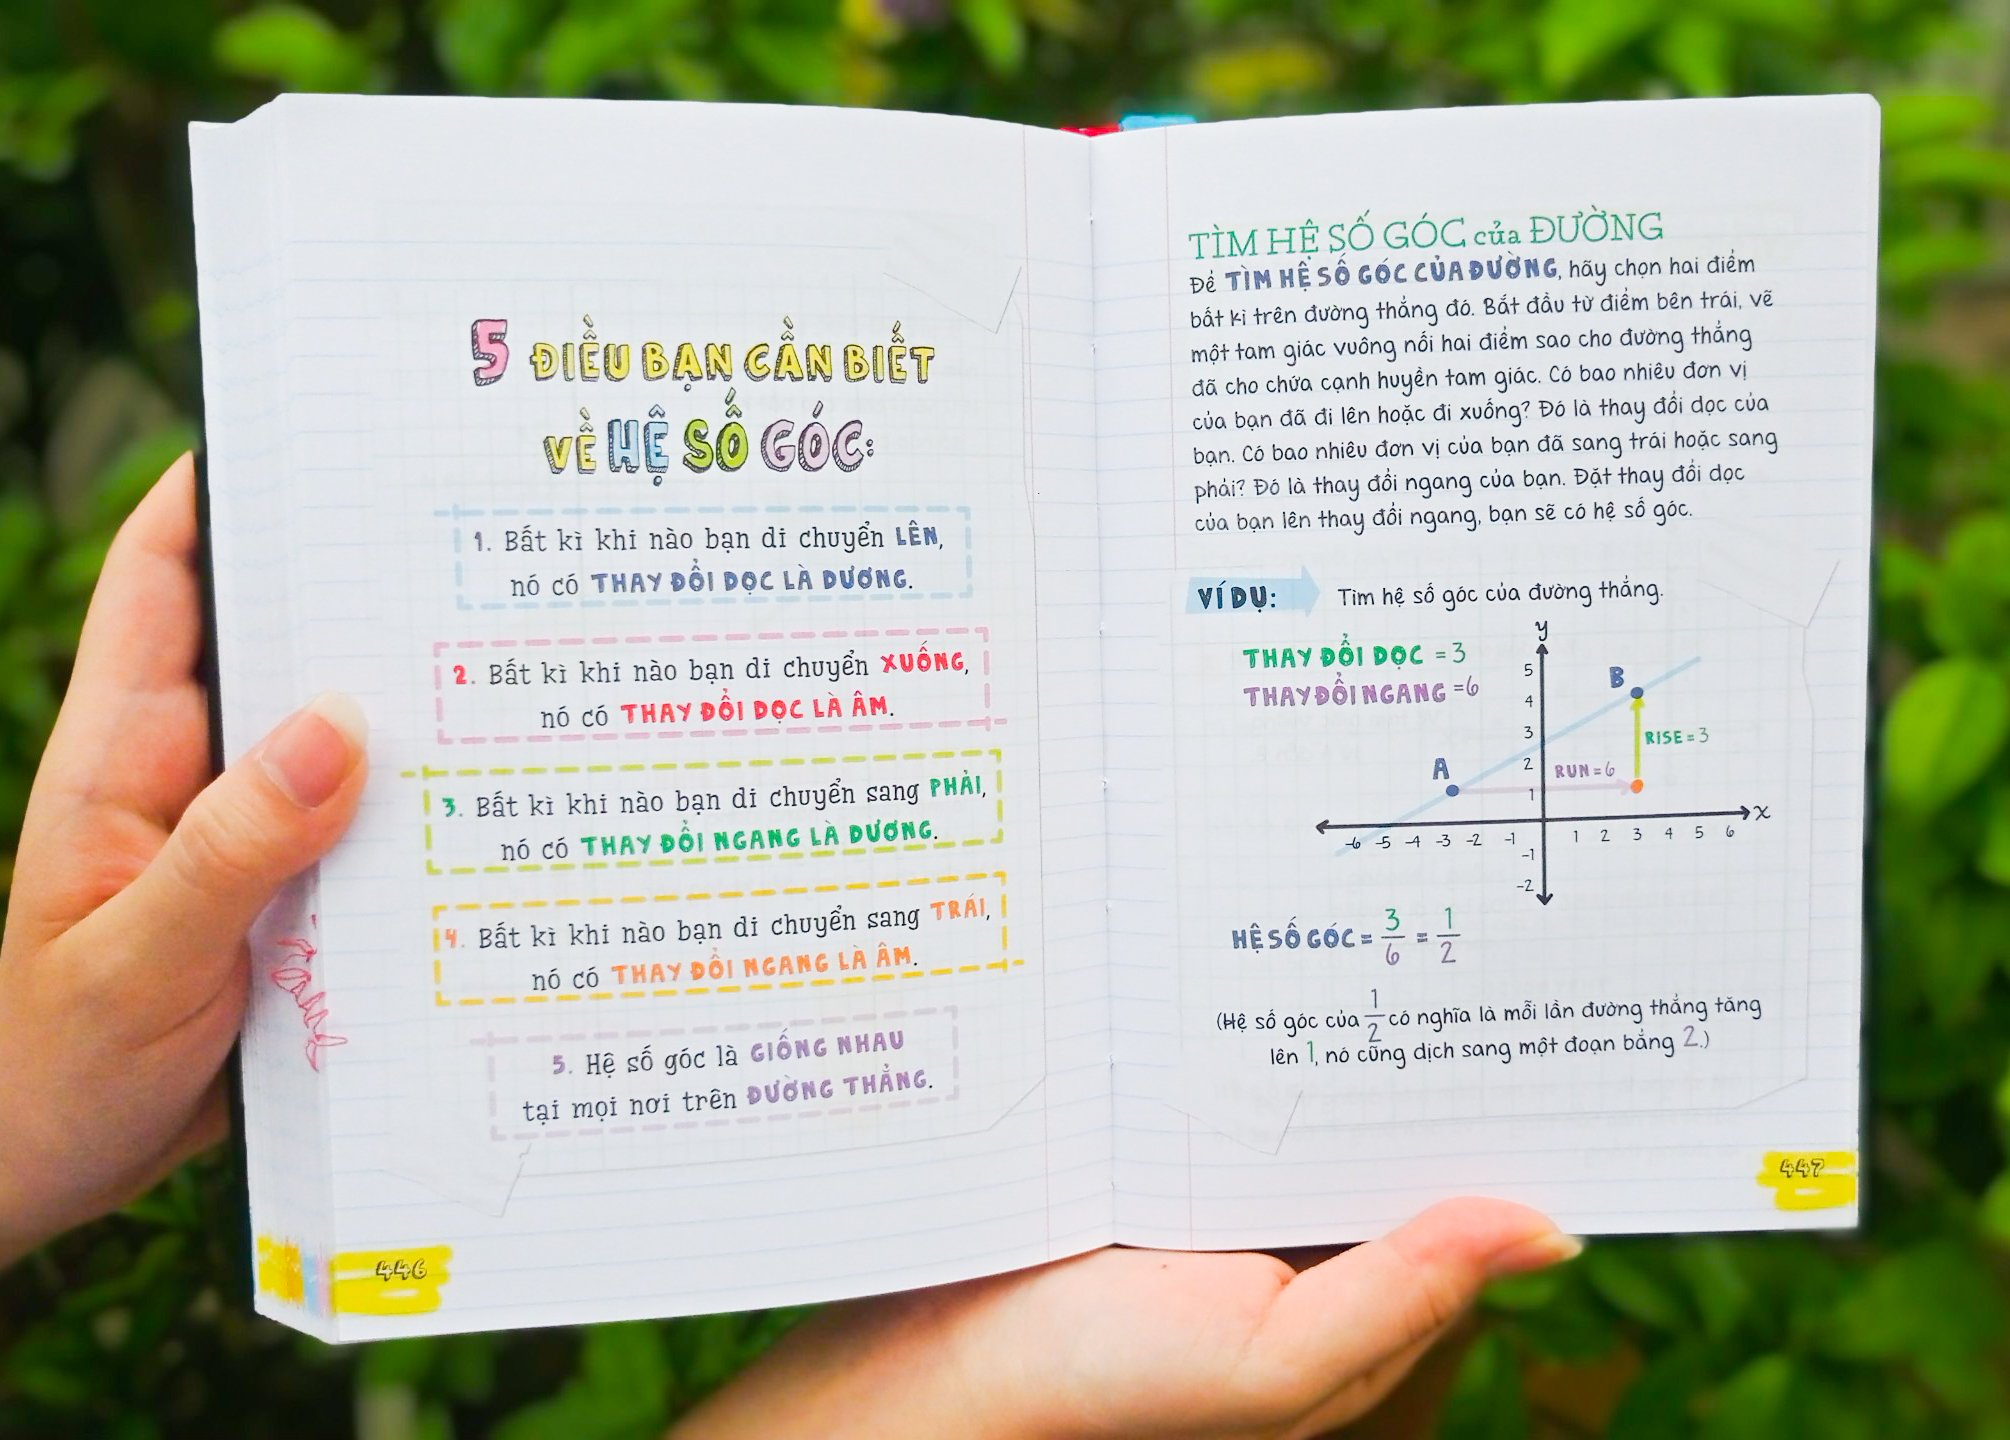 5 ĐIỀU BẠN CẦN BIẾT
VỀ HỆ SỐ GÓC:
1. Bất kì khi nào bạn di chuyển LÊN,
nó có THAY ĐỔI DỌC LÀ DƯƠNG.
2. Bất kì khi nào bạn di chuyển XUỐNG,
nó có THAY ĐỔI DỌC LÀ ÂM.
3. Bất kì khi nào bạn di chuyển sang PHẢI,
nó có THAY ĐỔI NGANG LÀ DƯƠNG.
4. Bất kì khi nào bạn di chuyển sang TRÁI,
nó có THAY ĐỔI NGANG LÀ ÂM.
5. Hệ số góc là GIỐNG NHAU
tại mọi nơi trên ĐƯỜNG THẲNG.
446
TÌM HỆ SỐ GÓC của ĐƯỜNG
Để TÌM HỆ SỐ GÓC CỦA ĐƯỜNG, hãy chọn hai điểm
bất kì trên đường thẳng đó. Bắt đầu từ điểm bên trái, vẽ
một tam giác vuông nối hai điểm sao cho đường thẳng
đã cho chứa cạnh huyền tam giác. Có bao nhiêu đơn vị
của bạn đã đi lên hoặc đi xuống? Đó là thay đổi dọc của
bạn. Có bao nhiêu đơn vị của bạn đã sang trái hoặc sang
phải? Đó là thay đổi ngang của bạn. Đặt thay đổi dọc
của bạn lên thay đổi ngang, bạn sẽ có hệ số góc.
VÍ DỤ: Tìm hệ số góc của đường thẳng.
THAY ĐỔI DỌC = 3
THAY ĐỔI NGANG = 6
y
5
B
4
3
RISE = 3
A
2
RUN = 6
1
x
-6 -5 -4 -3 -2 -1 1 2 3 4 5 6
-1
-2
HỆ SỐ GÓC = 3/6 = 1/2
(Hệ số góc của 1/2 có nghĩa là mỗi lần đường thẳng tăng
lên 1, nó cũng dịch sang một đoạn bằng 2.)
447